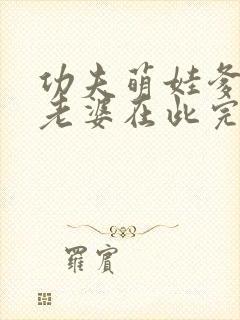 功夫萌娃爹
老婆在此完
羅賓